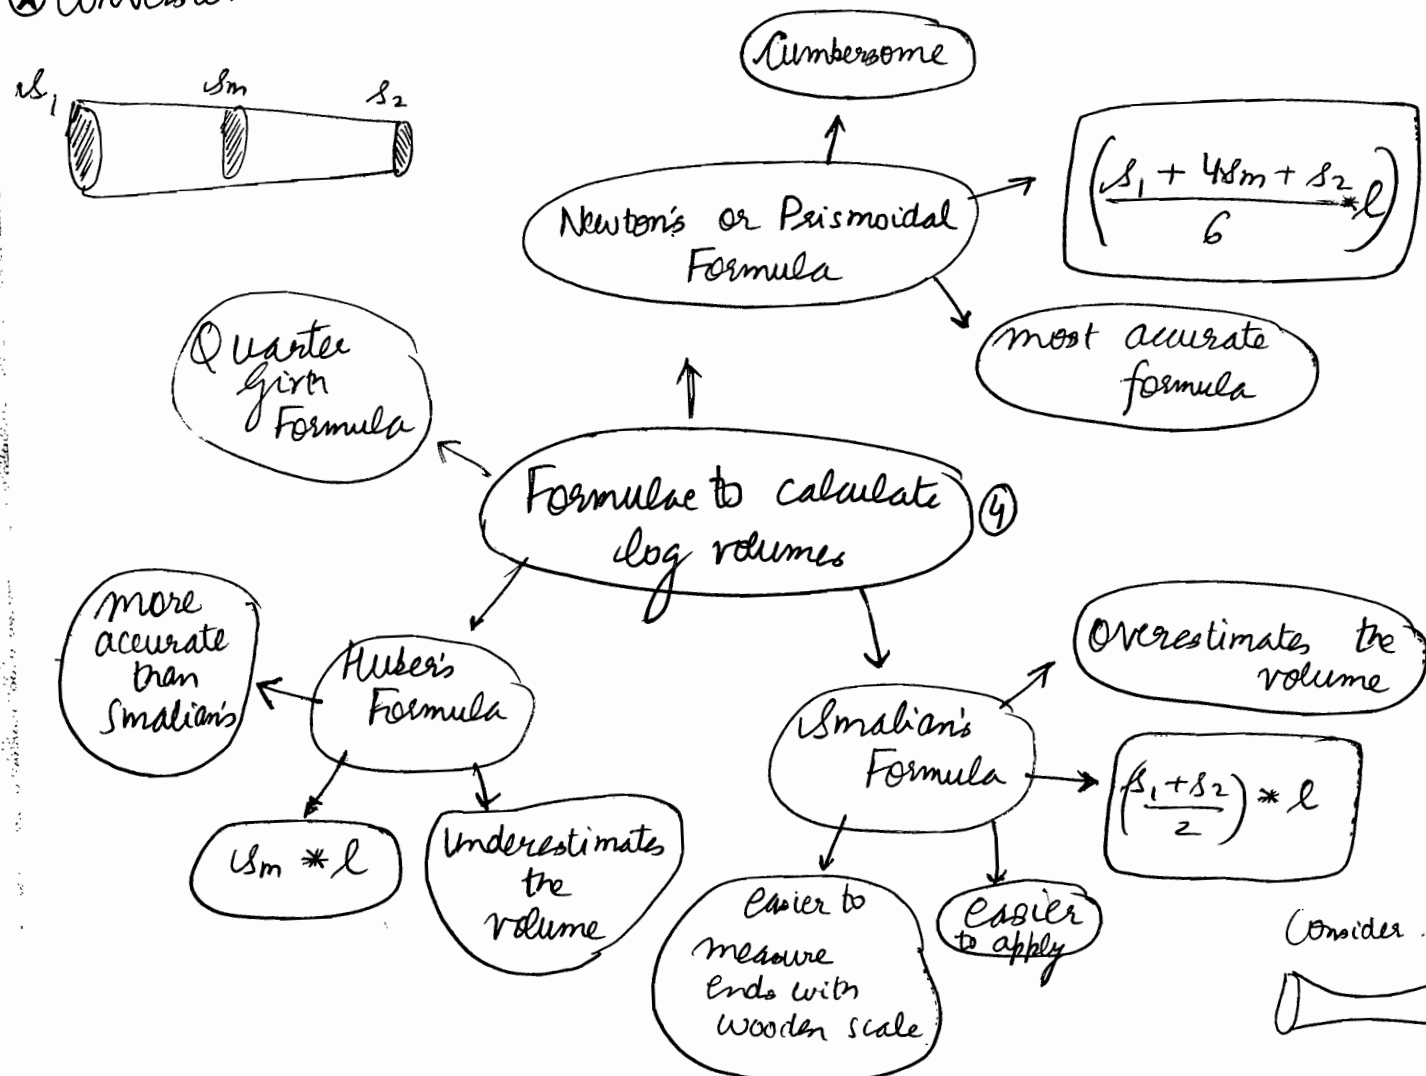 S₁ Sm S₂
Cumbersome
Newton's or Prismoidal
Formula
(S₁ + 4Sm + S₂ / 6 * l)
most accurate
formula
Quarter
Girth
Formula
Formulae to calculate
log volumes
4
more
accurate
than
Smalian's
Huber's
Formula
Sm * l
Underestimates
the
volume
Smalian's
Formula
overestimates the
volume
(S₁ + S₂ / 2) * l
easier to
measure
ends with
wooden scale
easier
to apply
Consider